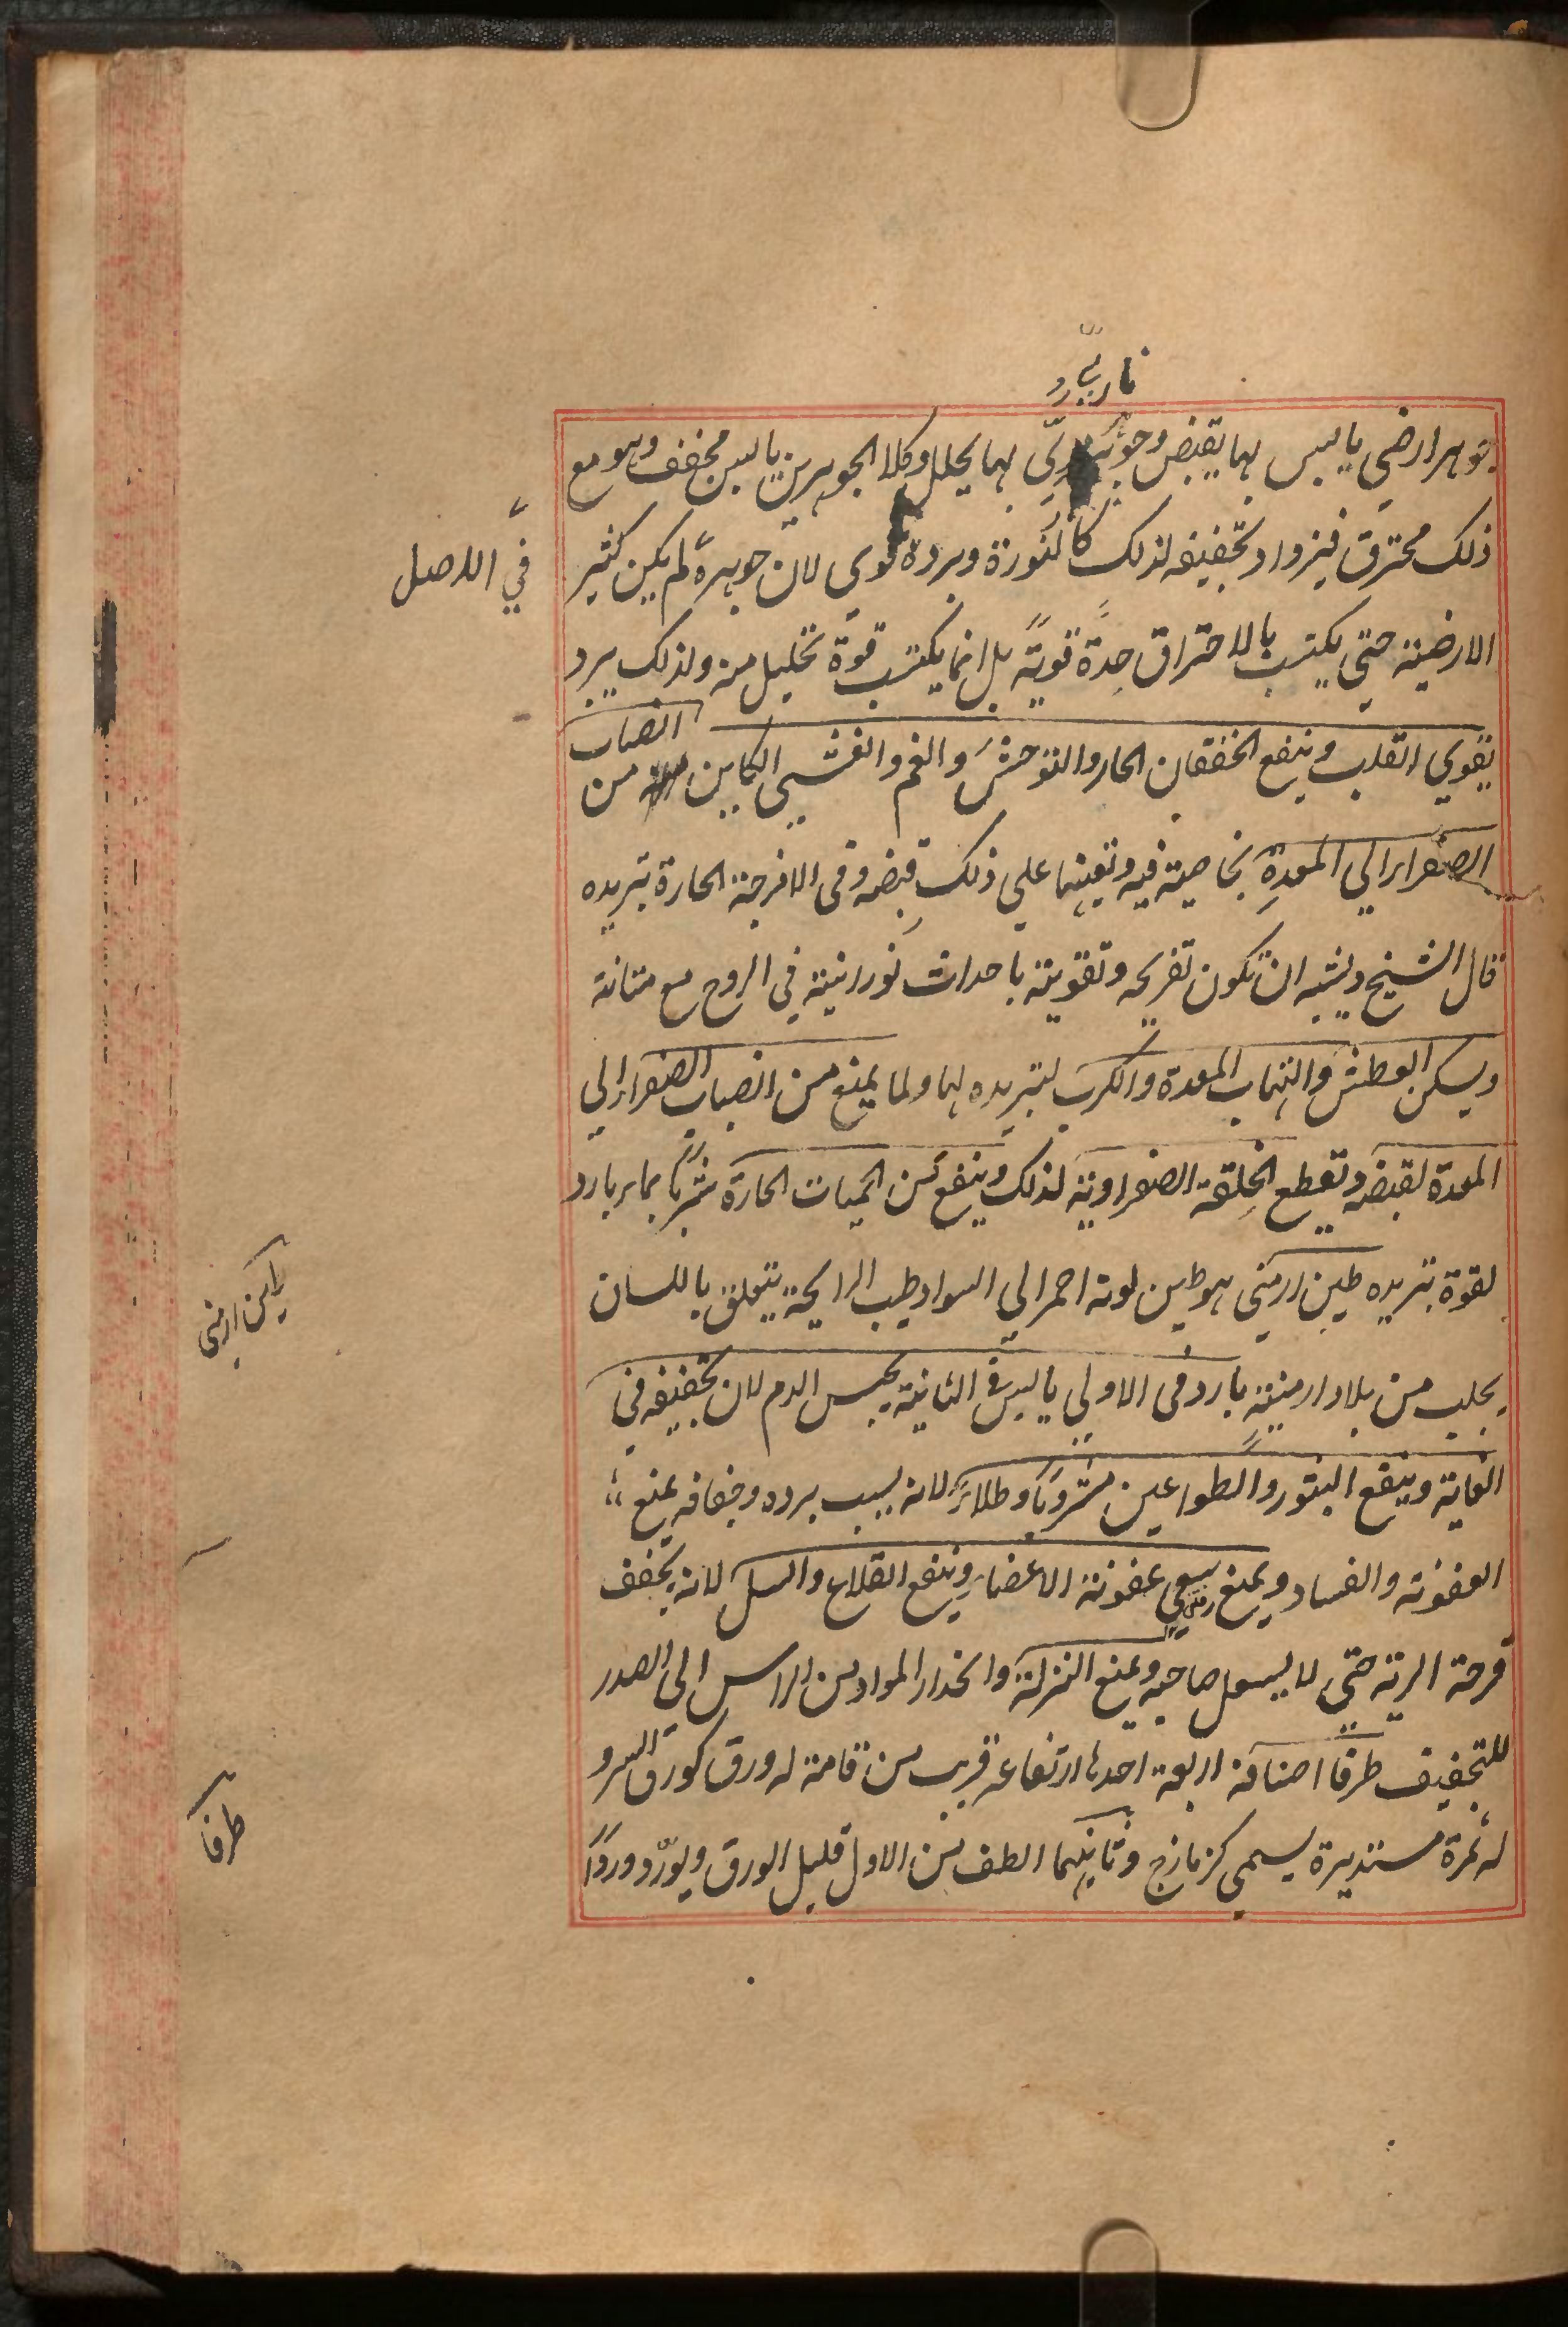 ناری بارد
جوهر ارضی یابس بها یقبض وجوهر ناری بها یحلل وکلا الجوهرین یابس مجفف وهو مع
ذلک محترق فیزداد تجفیفه لذلک کالنورة وبرده قوی لان جوهره لم یکن کثیر
فی الاصل
الارضیة حتی یکتسب بالاحتراق حِدةً قویةً بل انما یکتسب قوة تحلیل منه ولذلک یبرد
یقوی القلب وینفع الخفقان الحار والتوحش والغم والغشی الکاین من انصباب
الصفراء الی المعدة بخاصیة فیه وتعینها علی ذلک قبضه وفی الامزجة الحارة تبریده
قال الشیخ ویشبه ان تکون تفریحه وتقویته باحداث نورانیة فی الروح مع متانة
ویسکن العطش والتهاب المعدة والکرب لتبریده لها ولما یمنع من انصباب الصفراء الی
المعدة لقبضه وتقطع الخلفة الصفراویة لذلک وینفع من الحمیات الحارة شربًا بماء بارد
لقوة تبریده طین ارمنی هو طین لونه احمر الی السواد طیب الرایحة یتعلق باللسان
طین ارمنی
یجلب من بلاد ارمینیة بارد فی الاولی یابس فی الثانیة یحبس الدم لان تجفیفه فی
الغایة وینفع البثور والطواعین مشروبًا وطلاءً لانه بسبب برده وجفافه یمنع
العفونة والفساد ویمنع سعی عفونة الاعضاء وینفع القلاع والسل لانه یجفف
قرحة الریة حتی لا یسعل صاحبه ویمنع النزلة وانحدار المواد من الراس الی الصدر
للتجفیف طرفا اصنافه اربعة احدها ارتفاعه قریب من قامة له ورق کورق السرو
طرفا
له ثمرة مستدیرة یسمی کزمازج وثانیهما الطف من الاول قلیل الورق ویورّد وردًا